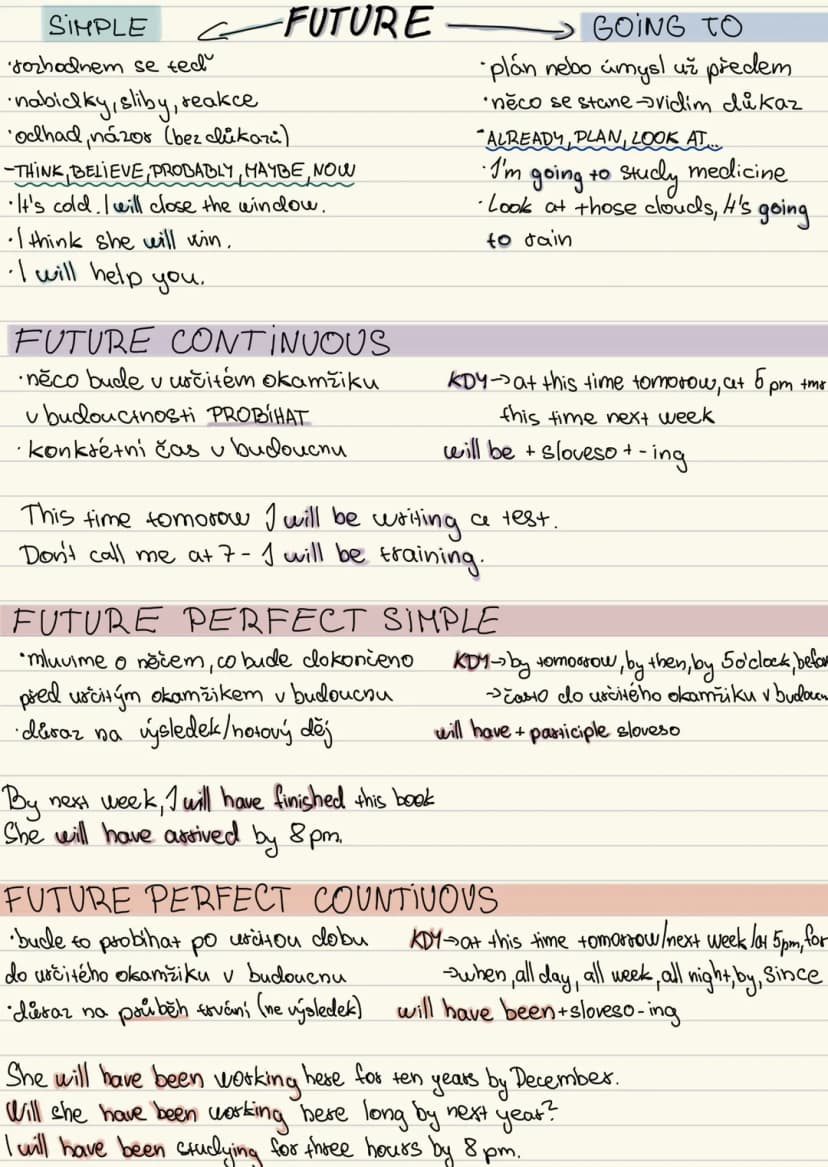 FUTURE
SIMPLE
·rozhodnem se teď
·nabídky, sliby, reakce
·odhad, názor (bez důkazů)
-THINK, BELIEVE, PROBABLY, MAYBE, NOW
·It's cold. I will close the window.
·I think she will win.
·I will help you.
GOING TO
·plán nebo úmysl už předem
·něco se stane→vidím důkaz
-ALREADY, PLAN, LOOK AT...
·I'm going to study medicine
·Look at those clouds, it's going
to rain
FUTURE CONTINUOUS
·něco bude v určitém okamžiku
v budoucnosti PROBÍHAT
·konkrétní čas v budoucnu
KDY→at this time tomorow, at 5 pm tmr
this time next week
will be + sloveso + -ing
This time tomorow I will be writing a test.
Don't call me at 7 - I will be training.
FUTURE PERFECT SIMPLE
·mluvíme o něčem, co bude dokončeno
před určitým okamžikem v budoucnu
·důraz na výsledek/hotový děj
KDY→by tomorrow, by then, by 5o'clock,
→často do určitého okamžiku v
will have + participle sloveso
By next week, I will have finished this book
She will have arrived by 8 pm.
FUTURE PERFECT COUNTIUOVS
·bude to probíhat po určitou dobu
do určitého okamžiku v budoucnu
·důraz na průběh trvání (ne výsledek)
KDY→at this time tomorrow/next week/at 5pm, for
→when, all day, all week, all night, by, since
will have been+sloveso-ing
She will have been working here for ten years by December.
Will she have been working here long by next year?
I will have been studying for three hours by 8 pm.